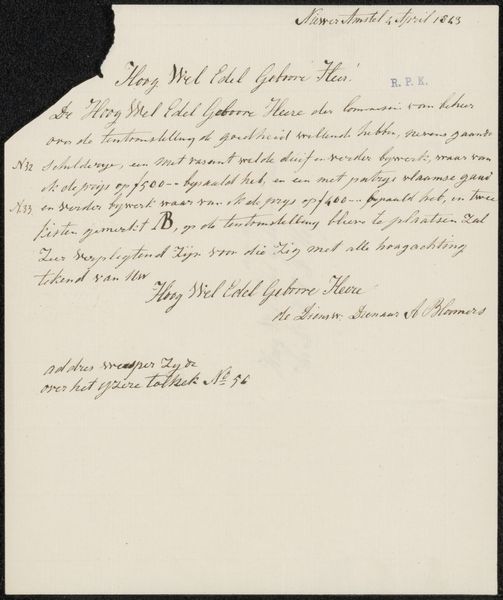 Nieuwer Amstel 4 April 1843
Hoog Wel Edel Geboore Heer!
R. P. K.
De Hoog Wel Edel Geboore Heere der Commissie van beheer
over de tentoonstelling de goedheid willende hebben, nevens gaande
N.32 schilderije, een met vasant welde duif en verder bijwerk, waar van
ik de prijs op ƒ500-- bepaald heb, en een met patrijs vlaamse gaai
N.33 en verder bijwerk waar van ik de prijs op ƒ400-- bepaald heb, in twee
kisten gemerkt AB, op de tentoonstelling te plaatsen Zal
Zeer verpligtend Zijn voor die Zig met alle hoogachting
tekend van Uw
Hoog Wel Edel Geboore Heere
de Dienstw. Dienaar A Bloemers
addres Zijde
over het ijzere tolhek No 56